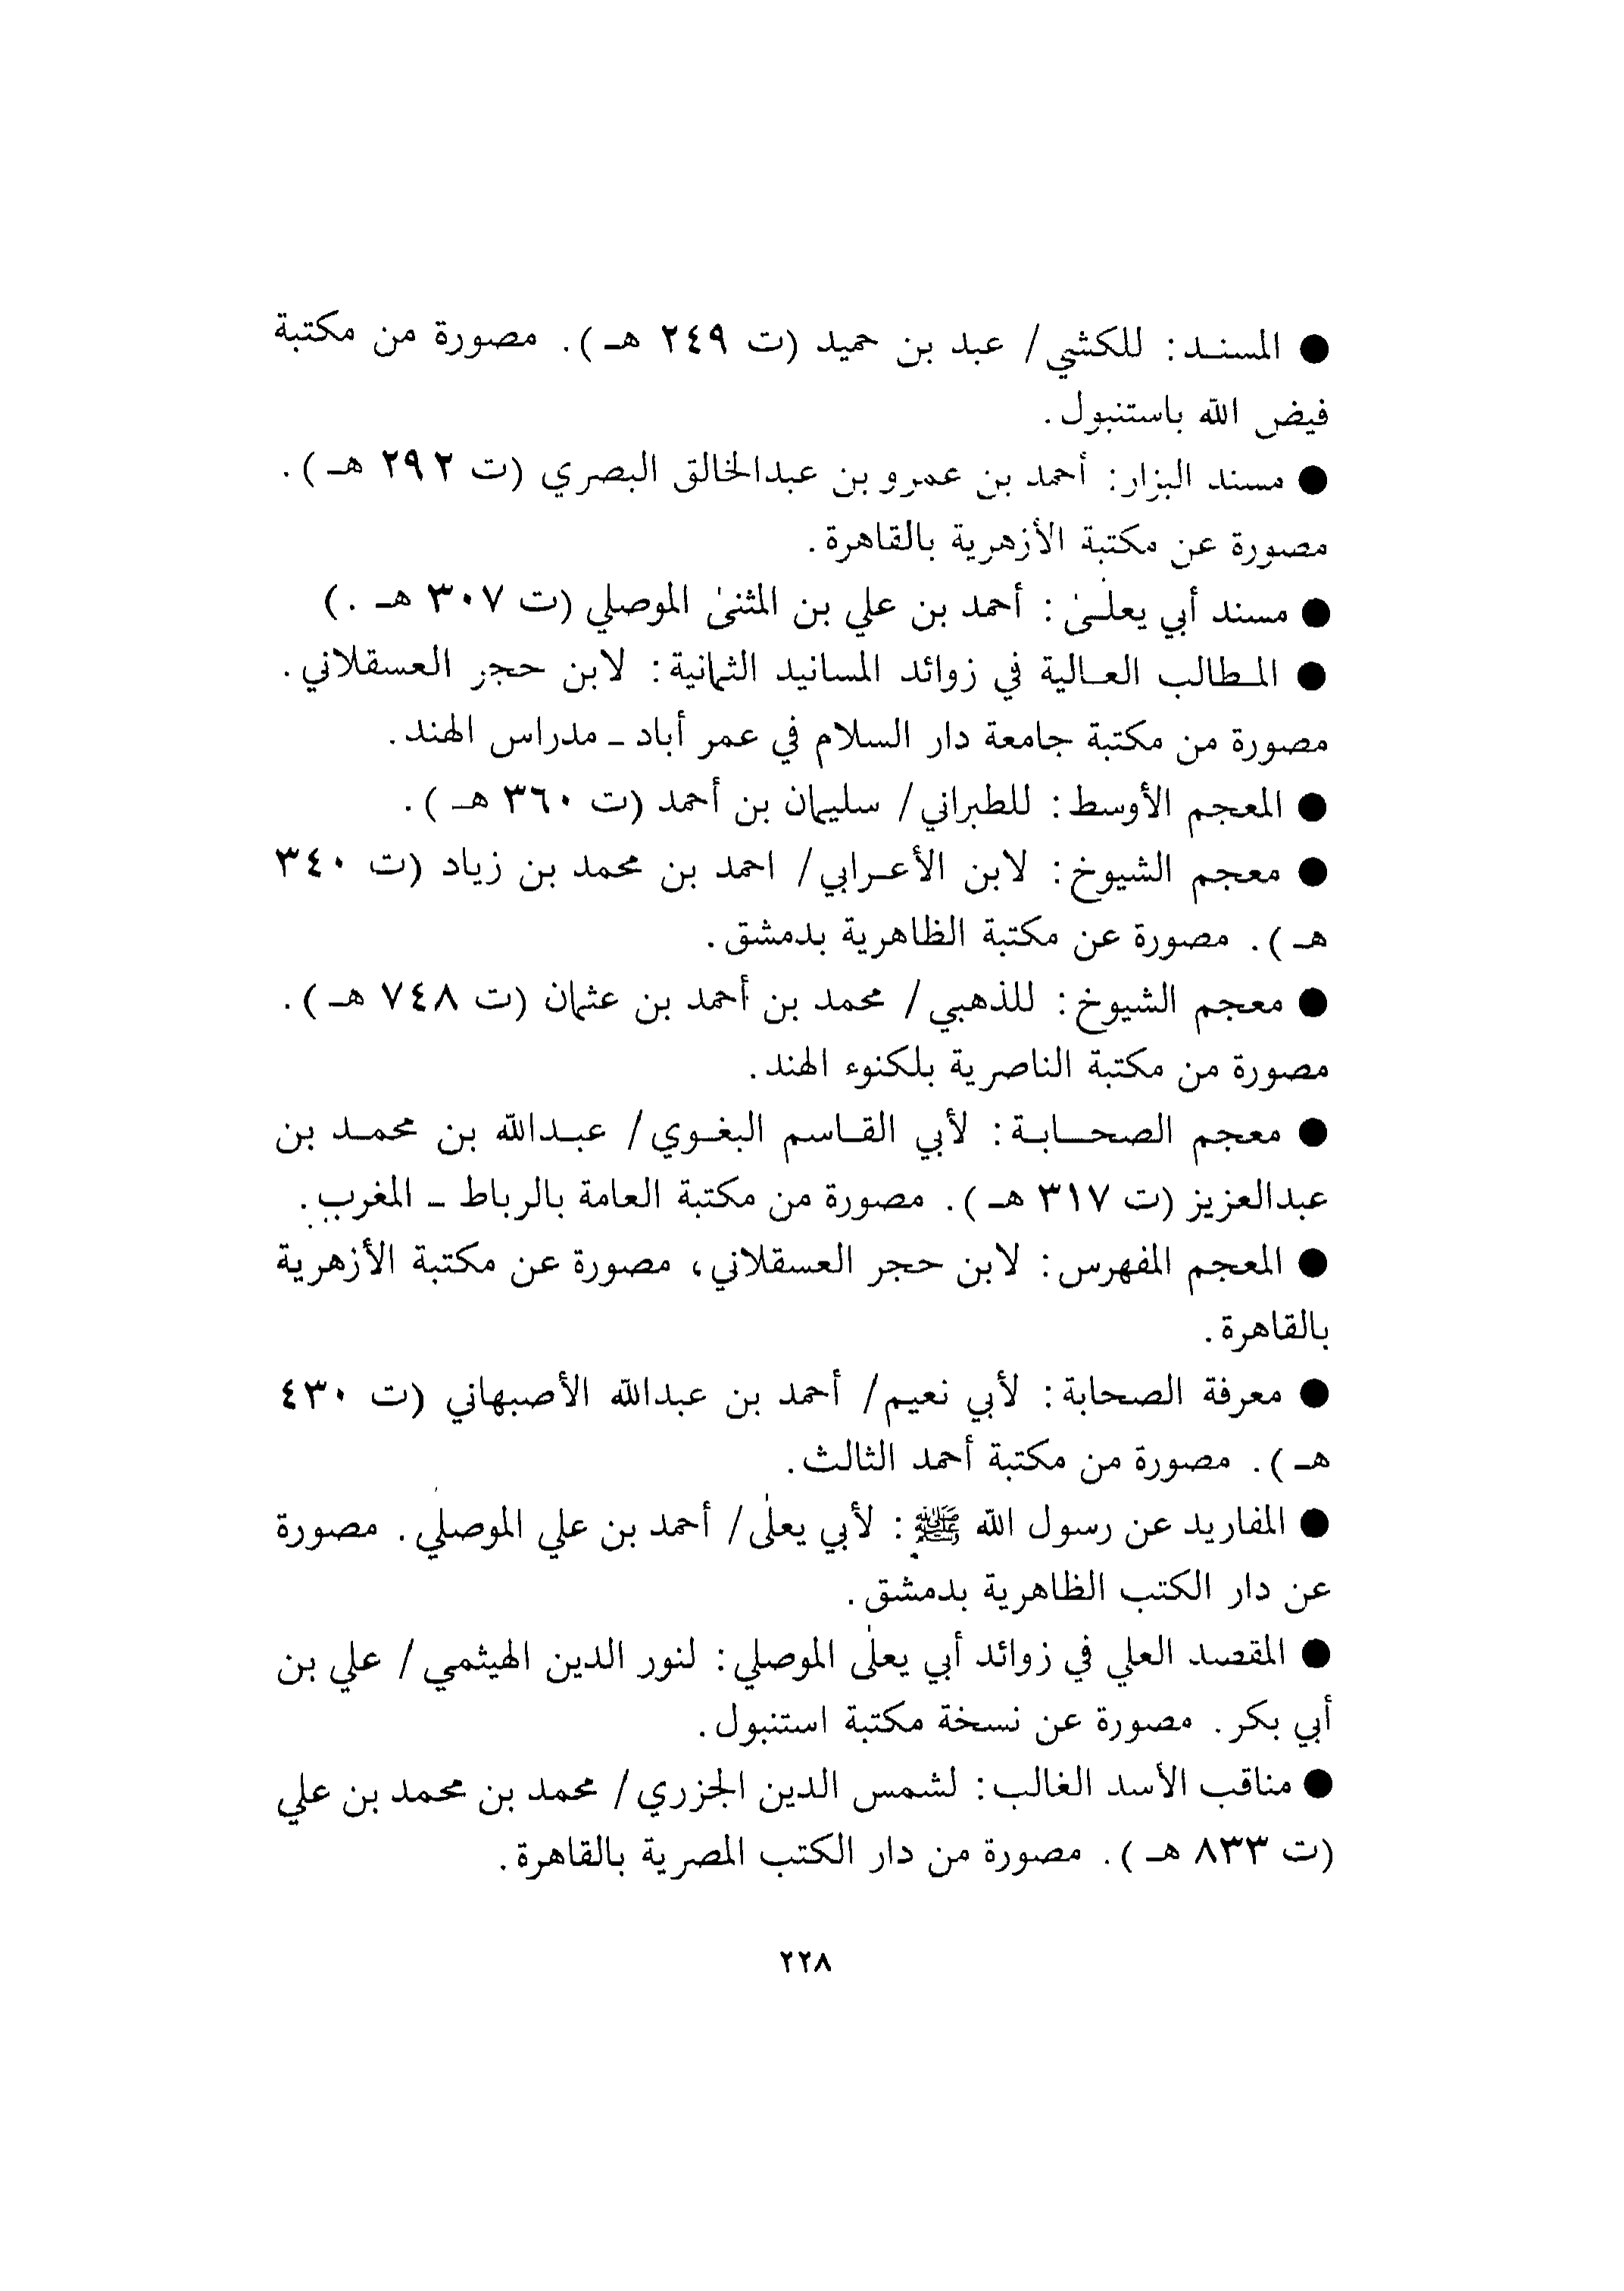 ● المسند: للكشي/ عبد بن حميد (ت ٢٤٩ هـ). مصورة من مكتبة
فيض الله باستنبول.
● مسند البزار: أحمد بن عمرو بن عبدالخالق البصري (ت ٢٩٢ هـ).
مصورة عن مكتبة الأزهرية بالقاهرة.
● مسند أبي يعلىٰ: أحمد بن علي بن المثنىٰ الموصلي (ت ٣٠٧ هـ .)
● المطالب العالية في زوائد المسانيد الثمانية: لابن حجر العسقلاني.
مصورة من مكتبة جامعة دار السلام في عمر أباد ـ مدراس الهند.
● المعجم الأوسط: للطبراني/ سليمان بن أحمد (ت ٣٦٠ هـ).
● معجم الشيوخ: لابن الأعرابي/ احمد بن محمد بن زياد (ت ٣٤٠
هـ). مصورة عن مكتبة الظاهرية بدمشق.
● معجم الشيوخ: للذهبي/ محمد بن أحمد بن عثمان (ت ٧٤٨ هـ).
مصورة من مكتبة الناصرية بلكنوء الهند.
● معجم الصحابة: لأبي القاسم البغوي/ عبدالله بن محمد بن
عبدالعزيز (ت ٣١٧ هـ). مصورة من مكتبة العامة بالرباط ـ المغرب.
● المعجم المفهرس: لابن حجر العسقلاني، مصورة عن مكتبة الأزهرية
بالقاهرة.
● معرفة الصحابة: لأبي نعيم/ أحمد بن عبدالله الأصبهاني (ت ٤٣٠
هـ). مصورة من مكتبة أحمد الثالث.
● المفاريد عن رسول الله ﷺ: لأبي يعلىٰ/ أحمد بن علي الموصلي. مصورة
عن دار الكتب الظاهرية بدمشق.
● المقصد العلي في زوائد أبي يعلىٰ الموصلي: لنور الدين الهيثمي/ علي بن
أبي بكر. مصورة عن نسخة مكتبة استنبول.
● مناقب الأسد الغالب: لشمس الدين الجزري/ محمد بن محمد بن علي
(ت ٨٣٣ هـ). مصورة من دار الكتب المصرية بالقاهرة.
٢٢٨